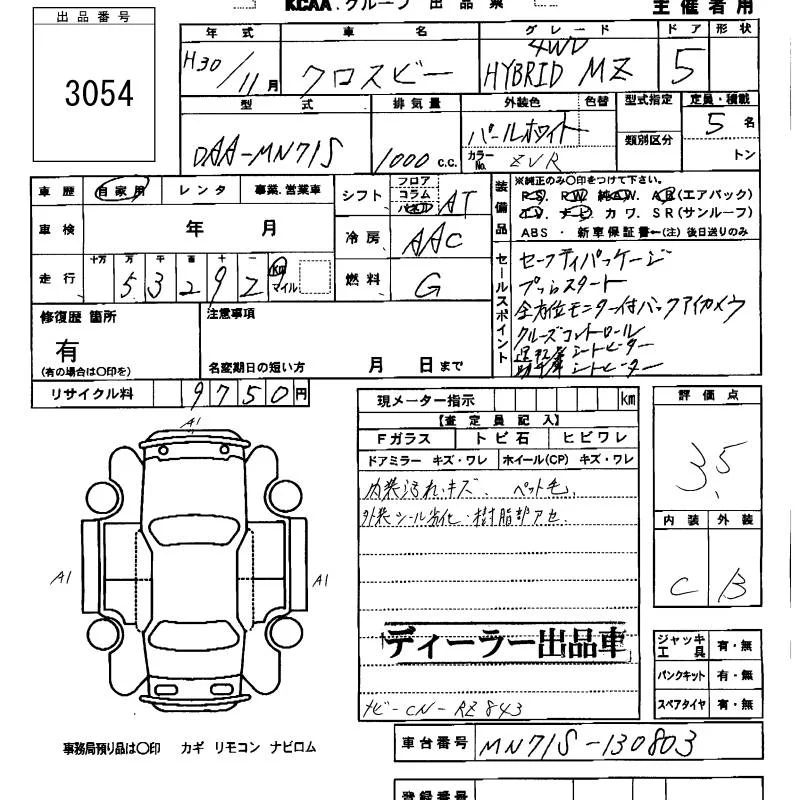 出品番号
3054
KCAA.グループ 出品票
主催者用
年式 車名 グレード ドア 形状
H30/11月 クロスビー 4WD HYBRID MZ 5
型式 排気量 外装色 色替 型式指定 定員・積載
DAA-MN71S 1000 c.c. パールホワイト 類別区分 5名
カラーNo. ZVR トン
車歴 自家用 レンタ 事業.営業車
車検 年 月
走行 十万 万 千 百 十 一 km マイル
53292
シフト フロア コラム パネル AT
冷房 AAC
燃料 G
装備品
※純正のみ〇印をつけて下さい。
PS. PW. 純AW. AB(エアバック)
TV. ナビ. カワ. SR(サンルーフ)
ABS ・ 新車保証書←(注) 後日送りのみ
セールスポイント
セーフティパッケージ
プッシュスタート
全方位モニター付バックアイカメラ
クルーズコントロール
運転席シートヒーター
助手席シートヒーター
修復歴 箇所
有
(有の場合は〇印を)
注意事項
名変期日の短い方 月 日まで
リサイクル料 9750円
現メーター指示 km
【査定員記入】
Fガラス トビ石 ヒビワレ
ドアミラー キズ・ワレ ホイール(CP) キズ・ワレ
内装汚れ・キズ. ペット毛.
外装シール劣化・樹脂部アセ.
ディーラー出品車
ナビ-CN-RZ843
評価点
3.5
内装 外装
C B
A1
A1
A1
ジャッキ工具 有・無
パンクキット 有・無
スペアタイヤ 有・無
事務局預り品は〇印 カギ リモコン ナビロム
車台番号 MN71S-130803
登録番号